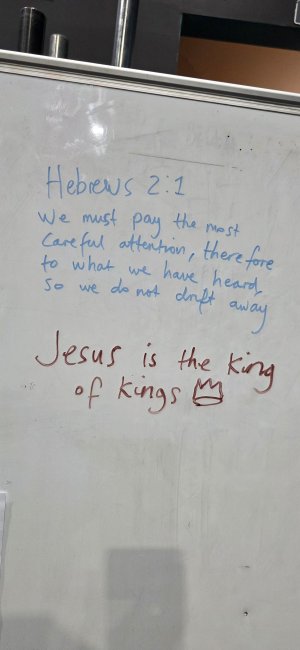 Hebrews 2:1
We must pay the most
careful attention, therefore
to what we have heard,
so we do not drift away
Jesus is the king
of kings